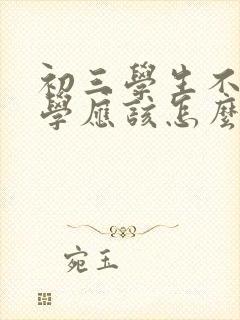 初三學生不
學應該怎麼
宛玉